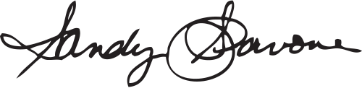 Sandy Savone